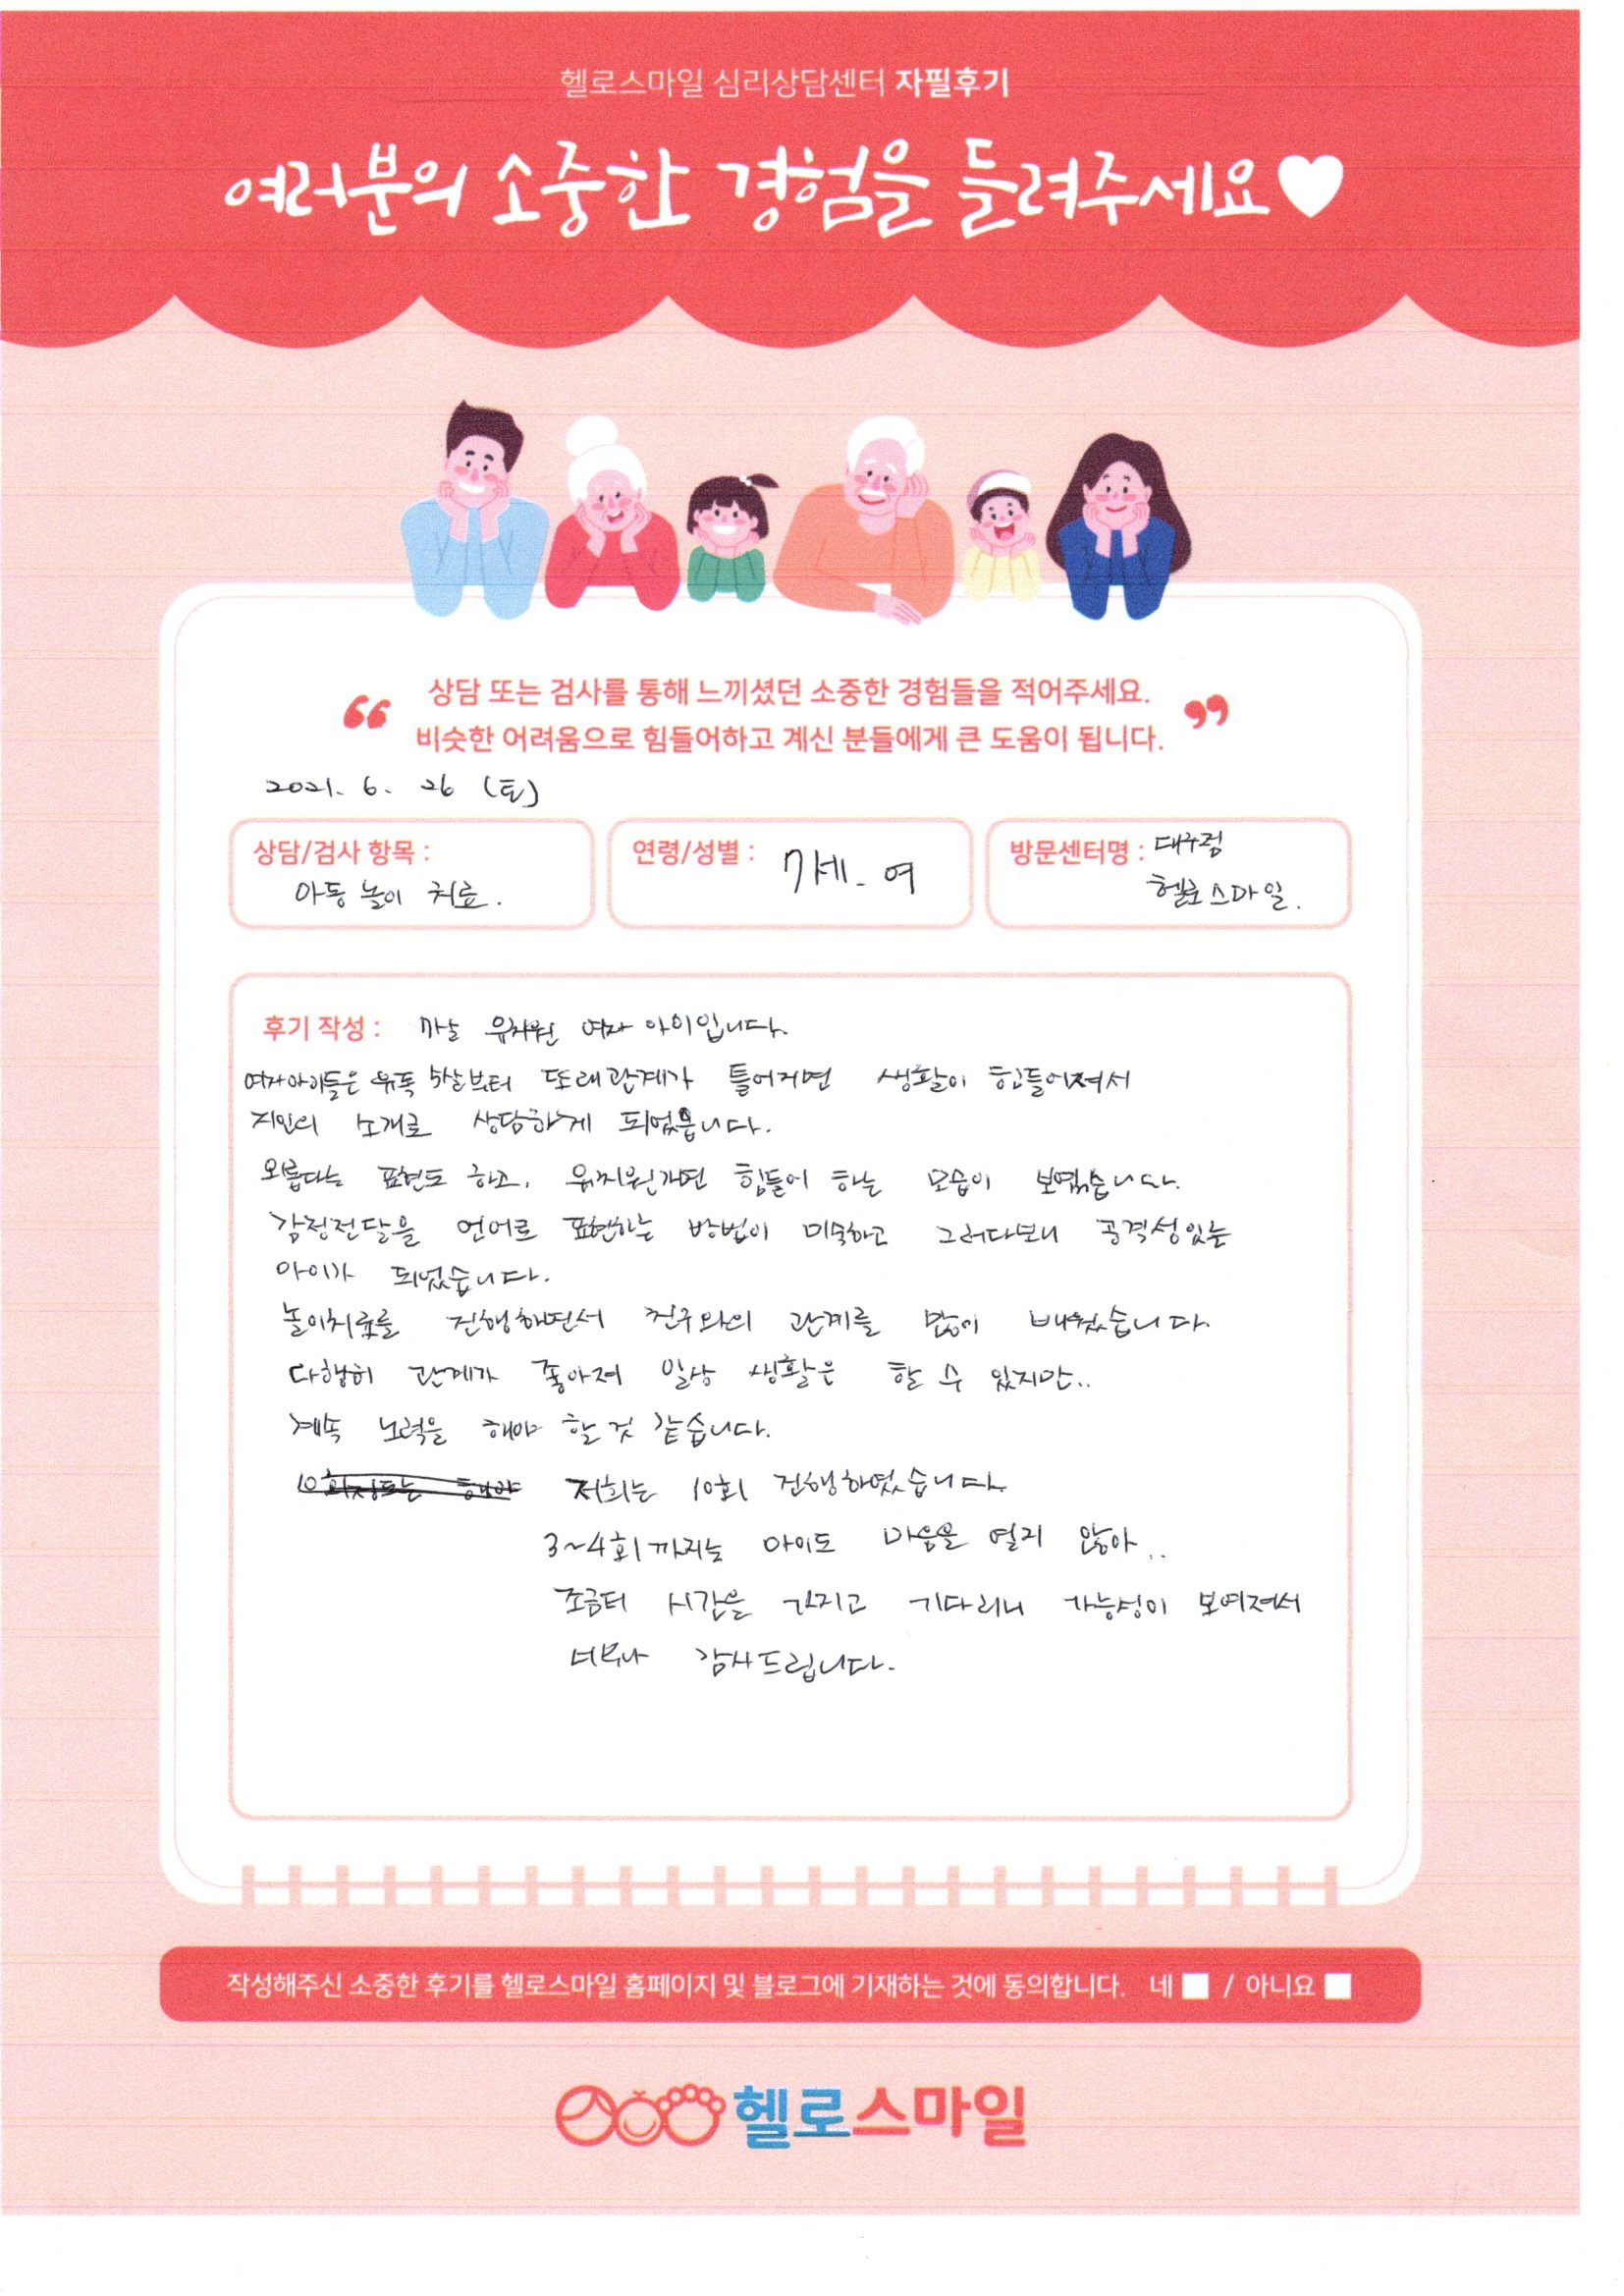 헬로스마일 심리상담센터 자필후기
여러분의 소중한 경험을 들려주세요♥
“ 상담 또는 검사를 통해 느끼셨던 소중한 경험들을 적어주세요.
비슷한 어려움으로 힘들어하고 계신 분들에게 큰 도움이 됩니다. ”
2021. 6. 26 (토)
상담/검사 항목 :
아동 놀이 치료.
연령/성별 : 7세. 여
방문센터명 : 대구점
헬로스마일.
후기 작성 : 7살 유치원 여자 아이입니다.
여자아이들은 유독 5살부터 또래관계가 틀어지면 생활이 힘들어져서
지인의 소개로 상담하게 되었습니다.
외롭다는 표현도 하고, 유치원가면 힘들어 하는 모습이 보였습니다.
감정전달을 언어로 표현하는 방법이 미숙하고 그러다보니 공격성있는
아이가 되었습니다.
놀이치료를 진행하면서 친구와의 관계를 많이 배웠습니다.
다행히 관계가 좋아져 일상 생활은 할 수 있지만..
계속 노력을 해야 할 것 같습니다.
저희는 10회 진행하였습니다.
3~4회까지는 아이도 마음을 열지 않아..
조금더 시간을 가지고 기다리니 가능성이 보여져서
너무나 감사드립니다.
작성해주신 소중한 후기를 헬로스마일 홈페이지 및 블로그에 기재하는 것에 동의합니다. 네 / 아니요
헬로스마일